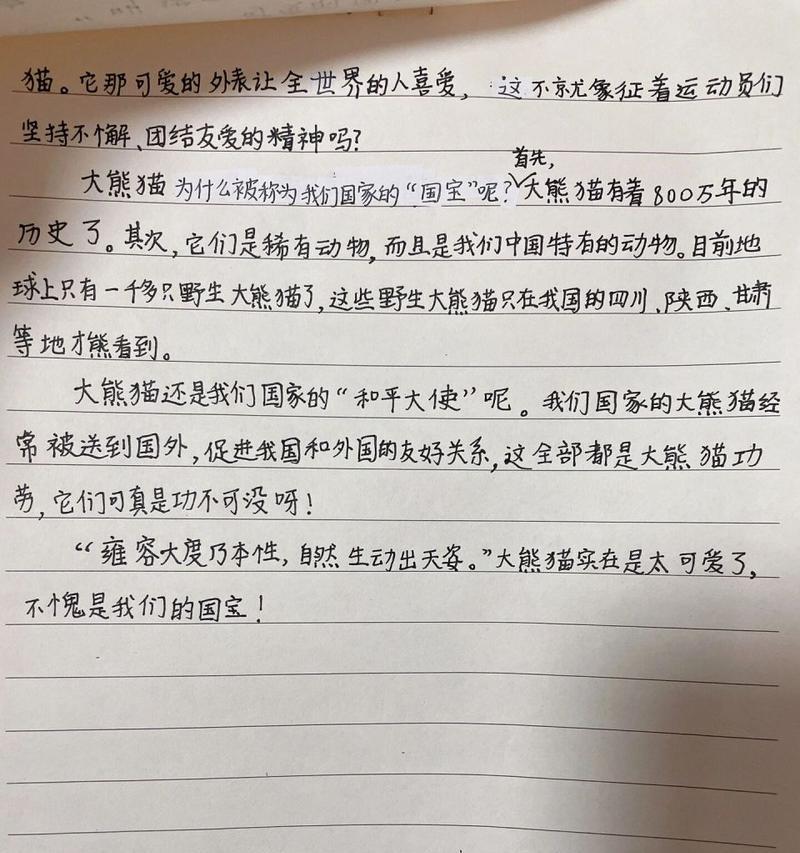 猫。它那可爱的外表让全世界的人喜爱，这不就像征着运动员们
坚持不懈、团结友爱的精神吗？
大熊猫为什么被称为我们国家的“国宝”呢？首先，大熊猫有着800万年的
历史了。其次，它们是稀有动物，而且是我们中国特有的动物。目前地
球上只有一千多只野生大熊猫了，这些野生大熊猫只在我国的四川、陕西、甘肃
等地才熊看到。
大熊猫还是我们国家的“和平大使”呢。我们国家的大熊猫经
常被送到国外，促进我国和外国的友好关系，这全部都是大熊猫功
劳，它们可真是功不可没呀！
“雍容大度乃本性，自然生动出天姿。”大熊猫实在是太可爱了，
不愧是我们的国宝！